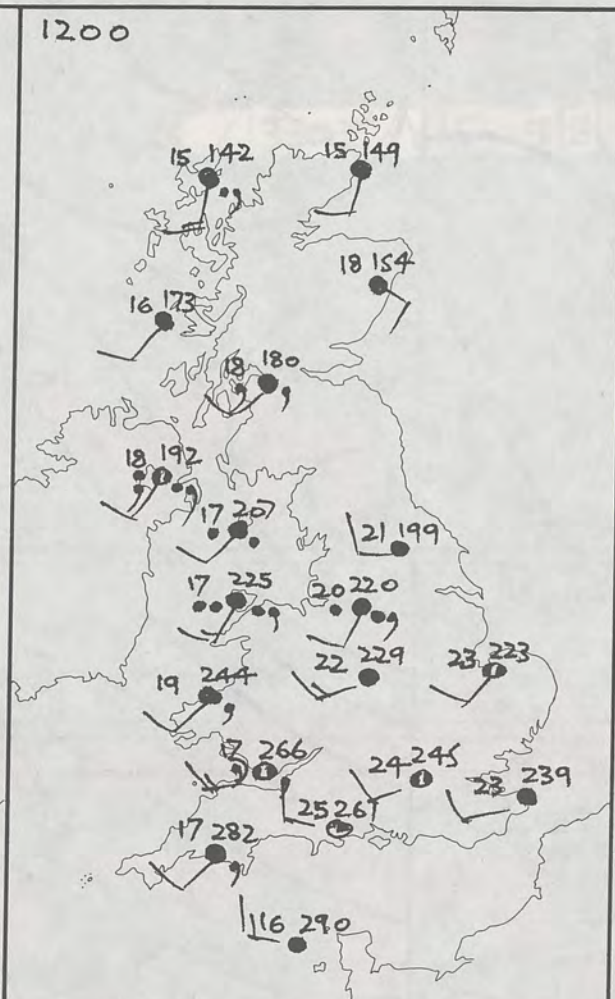 1200
15 142
15 149
18 154
16 173
18 180
18 192
17 207
21 199
17 225
20 220
22 229
23 223
19 244
17 266
24 245
23 239
25 267
17 282
16 290